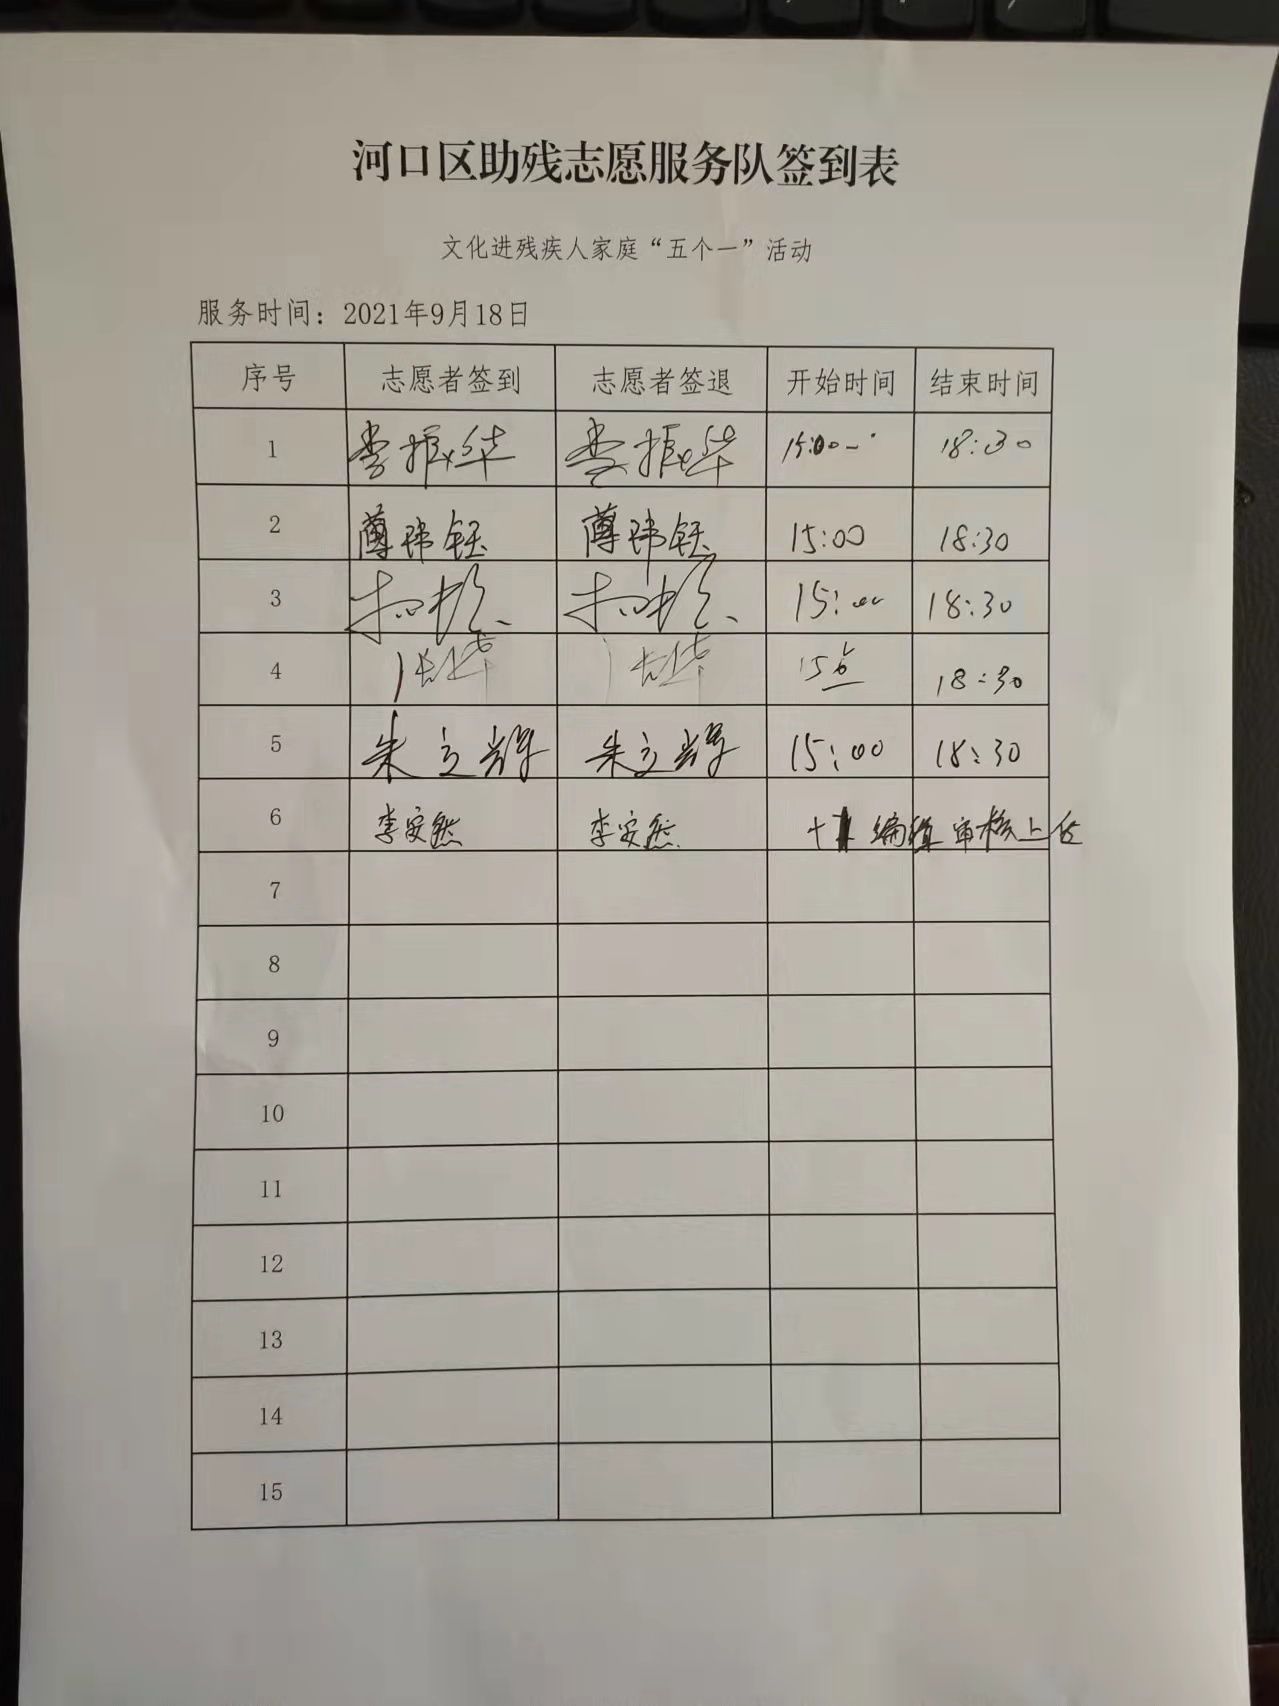 河口区助残志愿服务队签到表
文化进残疾人家庭“五个一”活动
服务时间：2021年9月18日
序号 志愿者签到 志愿者签退 开始时间 结束时间
1 李振华 李振华 15:00 18:30
2 薄玮钰 薄玮钰 15:00 18:30
3 15:00 18:30
4 18:30
5 朱立辉 朱立辉 15:00 18:30
6 李安然 李安然 编辑 审核上传
7
8
9
10
11
12
13
14
15